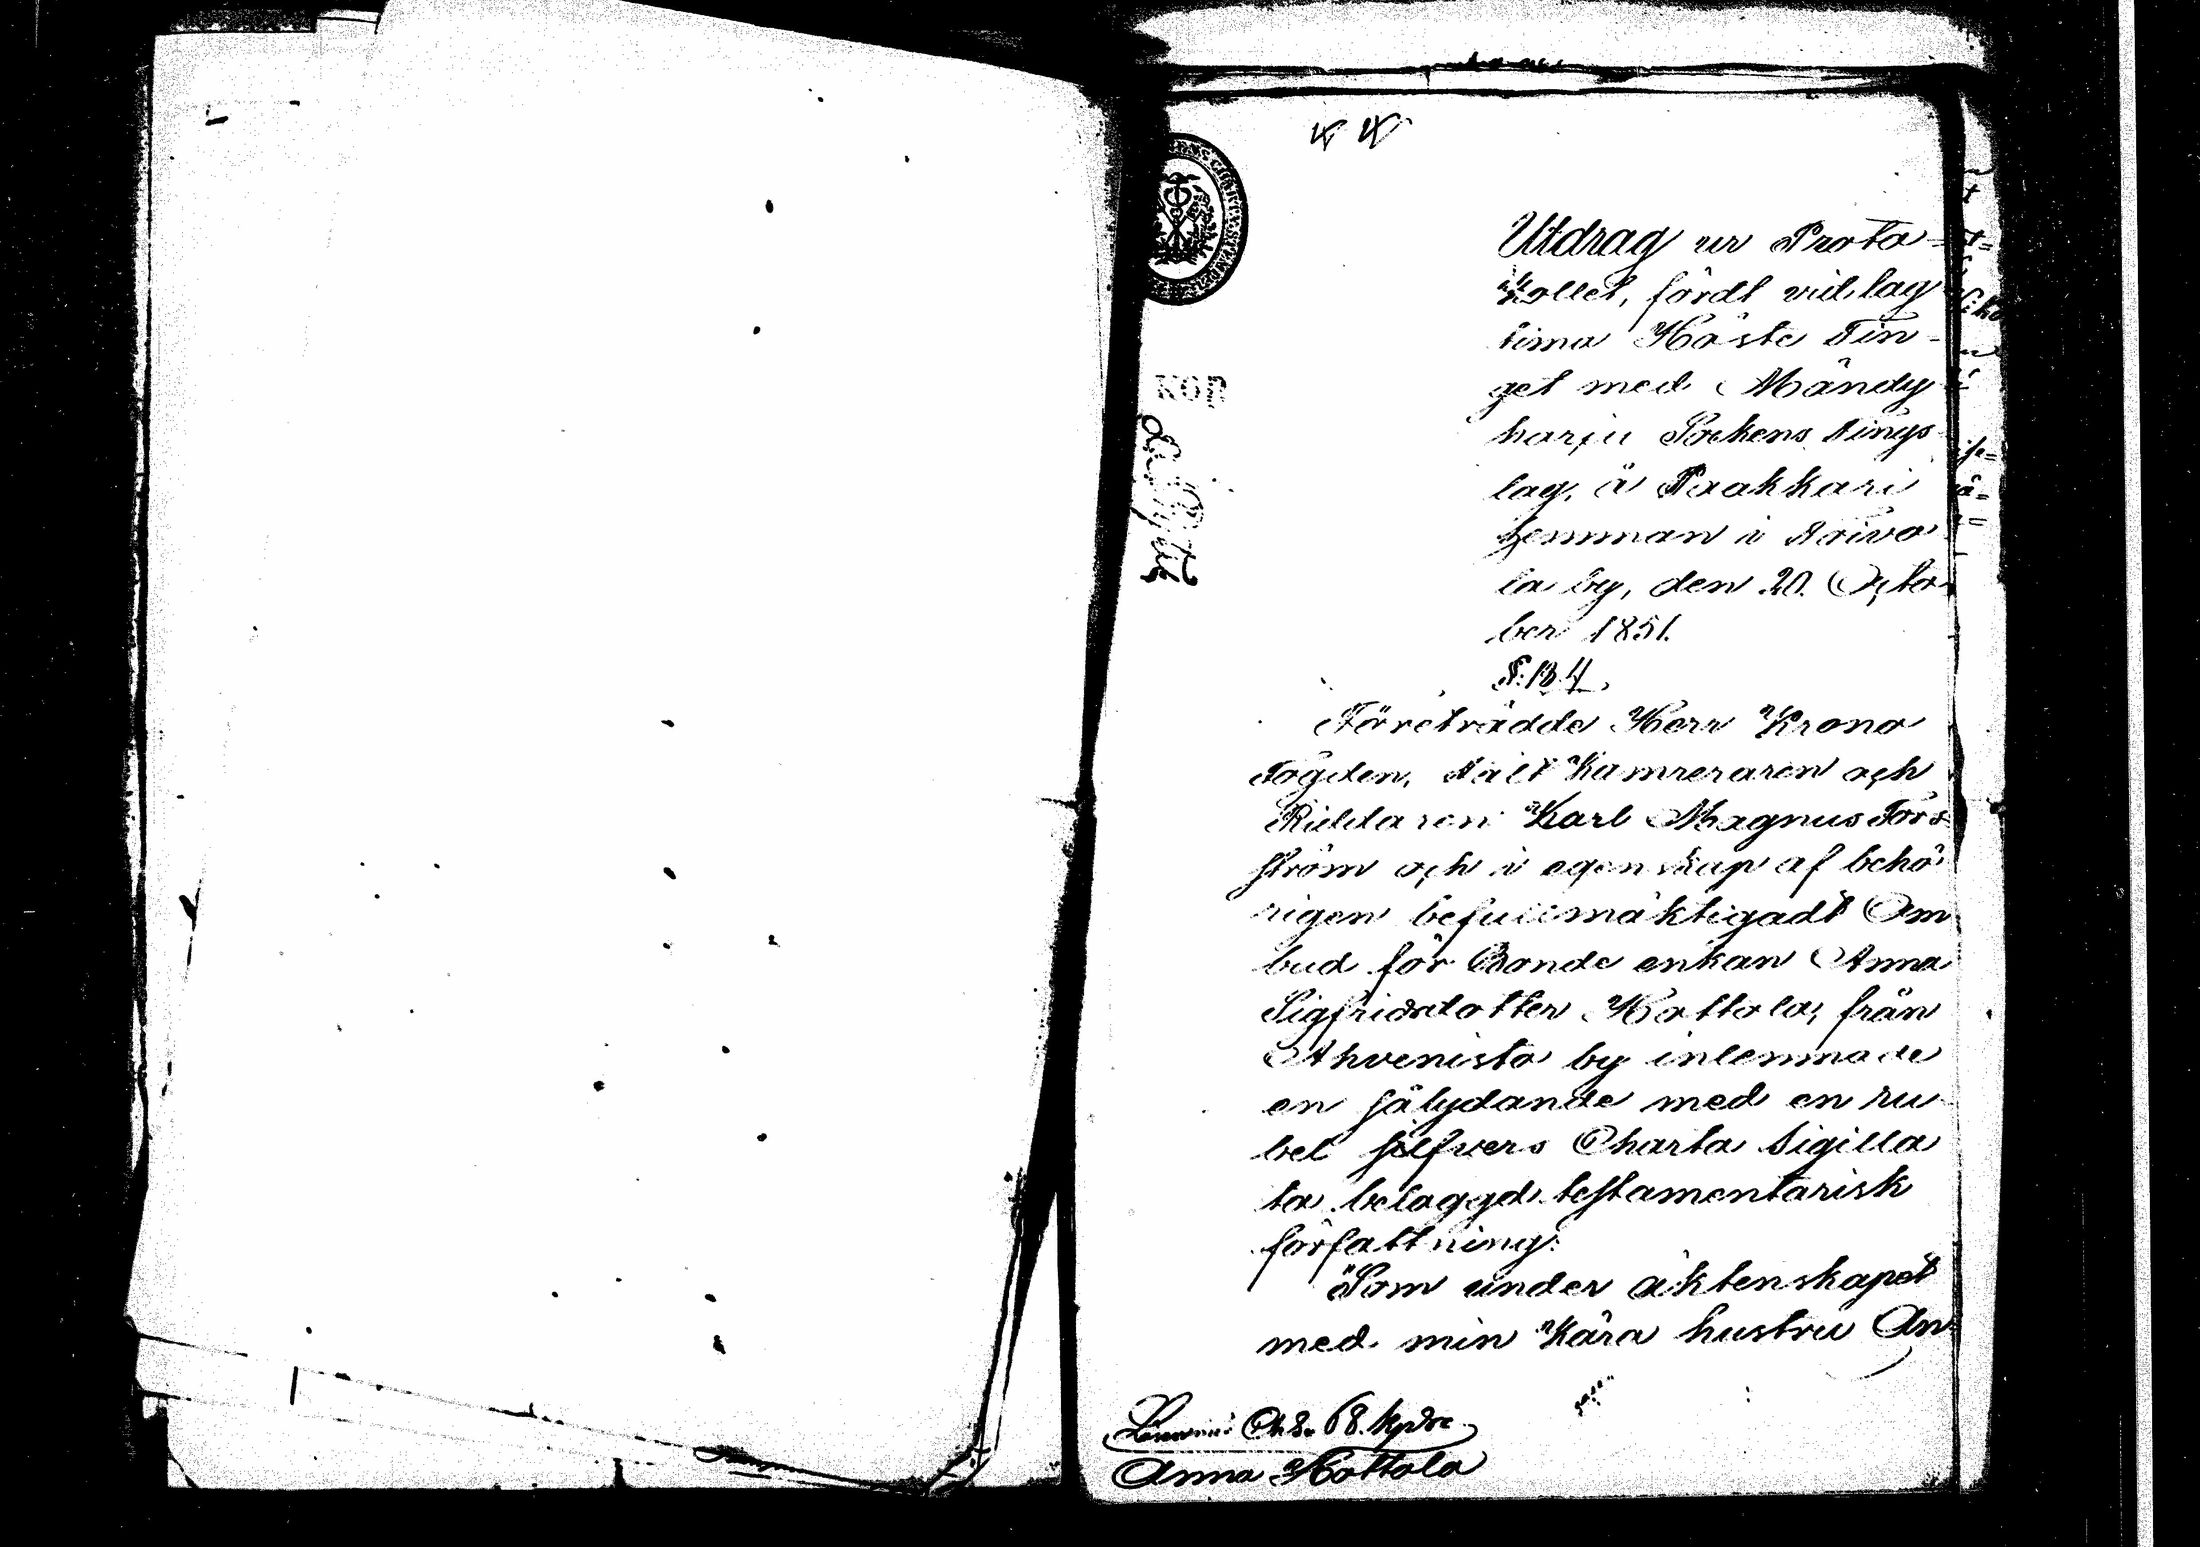 Utdrag ur Proto-
kollet, fördt vid lag
tima Höste Tin-
get med Mändy
harju Sockens Tings
lag, å Paakkari
hemman i Toivo
la by, den 20. Octo-
ber 1851.
§: 134.
Företrädde Herr Krono
Fogden, Fält Kamreraren och
Riddaren Karl Magnus Fors
ström och i egenskap af behö
rigen befullmäktigadt Om
bud för Bonde enkan Anna
Sigfridsdotter Hottola, från
Ahvenisto by inlemnade
en sålydande med en ru
bel silfvers Charta Sigilla
ta belaggd testamentarisk
författning:
"Som under äktenskapet
med min Kära hustru An-
Ch. S. 68. kp
Anna Hottola